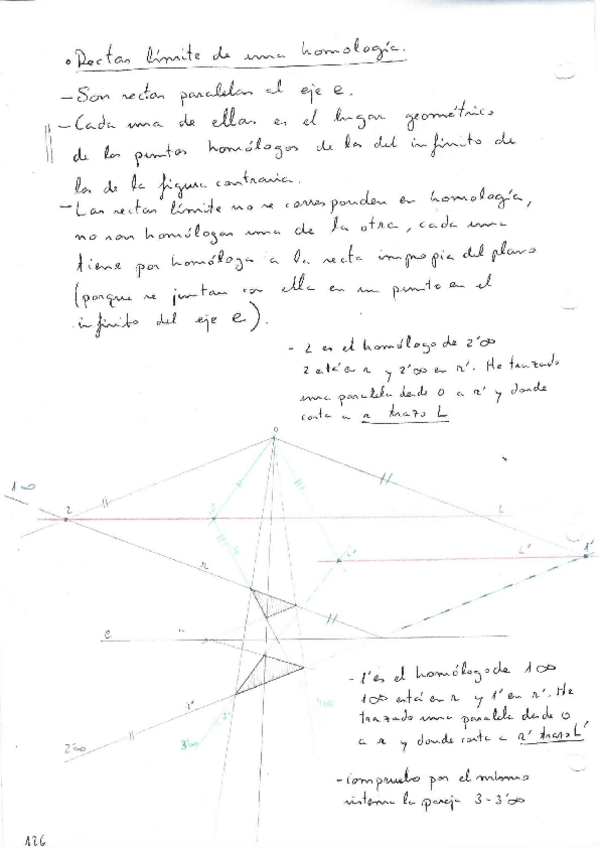 • Rectas límite de una homología.
- Son rectas paralelas al eje e.
- Cada una de ellas es el lugar geométrico
de los puntos homólogos de los del infinito de
los de la figura contraria.
- Las rectas límite no se corresponden en homología,
no son homólogas una de la otra, cada una
tiene por homóloga a la recta impropia del plano
(porque se juntan con ella en un punto en el
infinito del eje e).
- 2 es el homólogo de 2'∞
2 está en r y 2'∞ en r'. He trazado
una paralela desde O a r' y donde
corta a r trazo L
O
1∞
2
3
L
L'
1'
r
s
e
r'
s'
2'∞
3'∞
4∞
- 1' es el homólogo de 1∞
1∞ está en r y 1' en r'. He
trazado una paralela desde O
a r y donde corta a r' trazo L'
- Compruebo por el mismo
sistema la pareja 3-3'∞
126